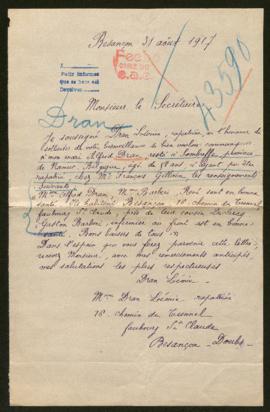 Besançon 31 août 1917
Pedir informes
que se han de
Devolver
A3590
Monsieur le Secrétaire
Dran
Je soussigné Dran Léonie, rapatriée, ai l'honneur de
solliciter de votre bienveillance de bien vouloir communiquer
à mon mari Alfred Dran, resté à Sombreffe, province
de Namur Belgique, âgé de 58 ans n'ayant pu être
rapatrié, chez Mr François les renseignements
suivants
Mme Alfred Dran, Mr René sont en bonne
santé. Ils habitent Besançon, 18 chemin du Tunnel
faubourg St Claude, près de leur cousin
Gaston infirmier au front est en bonne
santé. Bons baisers de tous
Dans l'espoir que vous ferez parvenir cette lettre,
recevez Monsieur, avec mes remerciements anticipés,
mes salutations les plus respectueuses
Dran Léonie
Mme Dran Léonie, rapatriée
18 chemin du Tunnel
faubourg St Claude
Besançon - Doubs